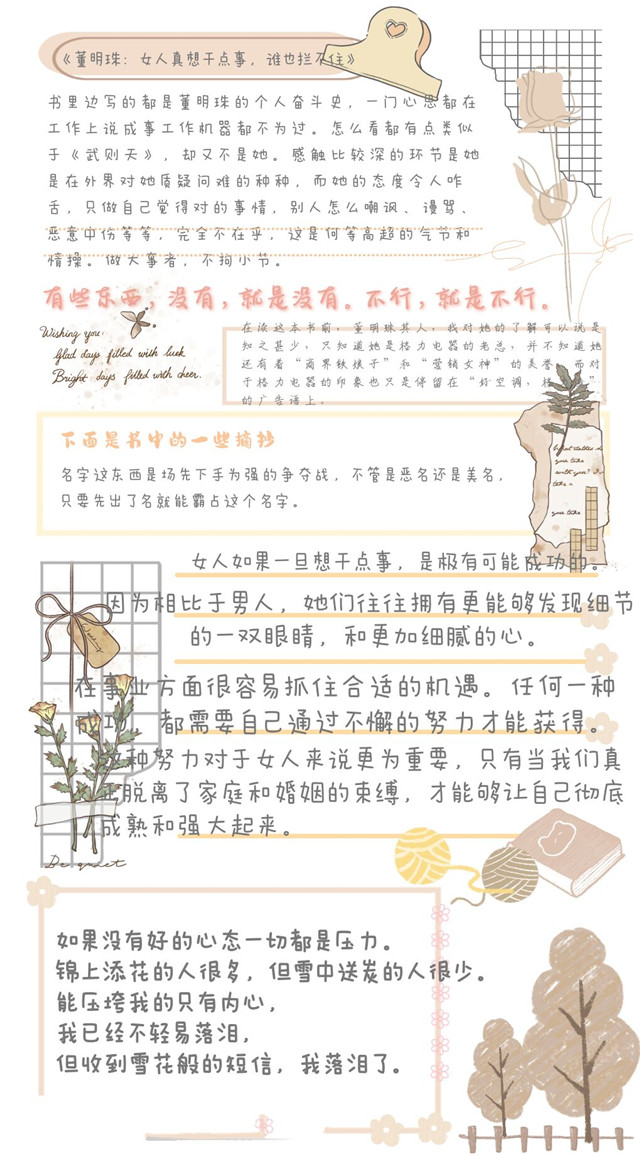 《董明珠：女人真想干点事，谁也拦不住》
书里边写的都是董明珠的个人奋斗史，一门心思都在
工作上说成事工作机器都不为过。怎么看都有点类似
于《武则天》，却又不是她。感触比较深的环节是她
是在外界对她质疑问难的种种，而她的态度令人咋
舌，只做自己觉得对的事情，别人怎么嘲讽、谩骂、
恶意中伤等等，完全不在乎，这是何等高超的气节和
情操。做大事者，不拘小节。
有些东西，没有，就是没有。不行，就是不行。
Wishing you:
Glad days filled with luck
Bright days filled with cheer.
在读这本书前，董明珠其人，我对她的了解可以说是
知之甚少，只知道她是格力电器的老总，并不知道她
还有着“商界铁娘子”和“营销女神”的美誉，而对
于格力电器的印象也只是停留在“好空调，格
的广告语上。
下面是书中的一些摘抄
名字这东西是场先下手为强的争夺战，不管是恶名还是美名，
只要先出了名就能霸占这个名字。
with you?
take a
your take
女人如果一旦想干点事，是极有可能成功的。
因为相比于男人，她们往往拥有更能够发现细节
的一双眼睛，和更加细腻的心。
在事业方面很容易抓住合适的机遇。任何一种
成功，都需要自己通过不懈的努力才能获得。
这种努力对于女人来说更为重要，只有当我们真
脱离了家庭和婚姻的束缚，才能够让自己彻底
成熟和强大起来。
Be quiet
如果没有好的心态一切都是压力。
锦上添花的人很多，但雪中送炭的人很少。
能压垮我的只有内心，
我已经不轻易落泪，
但收到雪花般的短信，我落泪了。